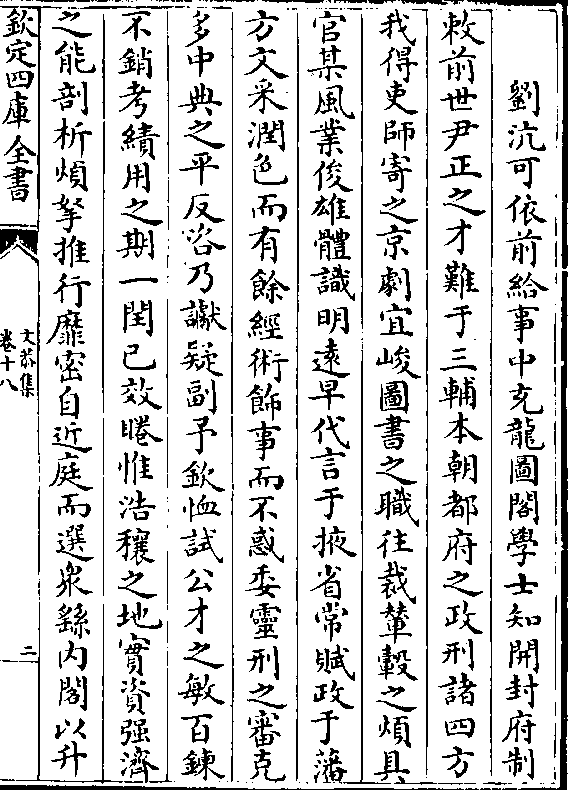 劉沆可依前給事中充龍圖閣學士知開封府制
敕前世尹正之才難于三輔本朝都府之政刑諸四方
我得吏師寄之京劇宜峻圖書之職往裁輦轂之煩具
官某風業俊雄體識明遠早代言于掖省常賦政于藩
方文采潤色而有餘經術飾事而不惑委靈刑之審克
多中典之平反咨乃讞疑副予欽恤試公才之敏百鍊
不銷考績用之期一閏已效睠惟浩穰之地實資强濟
之能剖析煩拏推行靡密自近庭而選衆繇内閣以升
欽定四庫全書
文恭集
卷十八
二